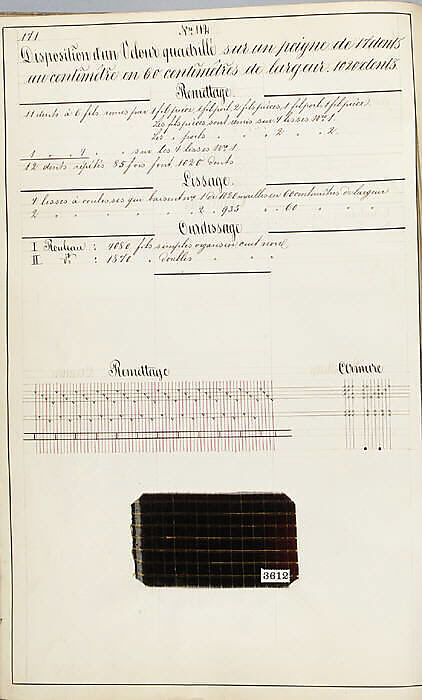 171
No 114
Disposition d'un Velour quadrillé sur un peigne de 17 dents
au centimètre en 60 centimètres de largeur. 1020 dents.
Remettage.
11 dents à 6 fils remis par 1 fil pièce, 1 fil poil, 2 fils pièces, 1 fil poil, 1 fil pièce.
Les fils pièces sont remis sur 4 lisses No 1.
Les " poils " " " 2 " " 2.
1 " " 4 " " sur les 4 lisses No 1.
12 dents répétés 85 fois font 1020 dents
Lissage.
4 lisses à coulisses que 1020 mailles en 60 centimètres de largeur
2 " " " " " 2 " 935 " " 60 " "
Ourdissage
I Rouleau : 4080 fils simples organsin cuit noir
II " : 1870 " doubles " " "
Remettage Armure
3612